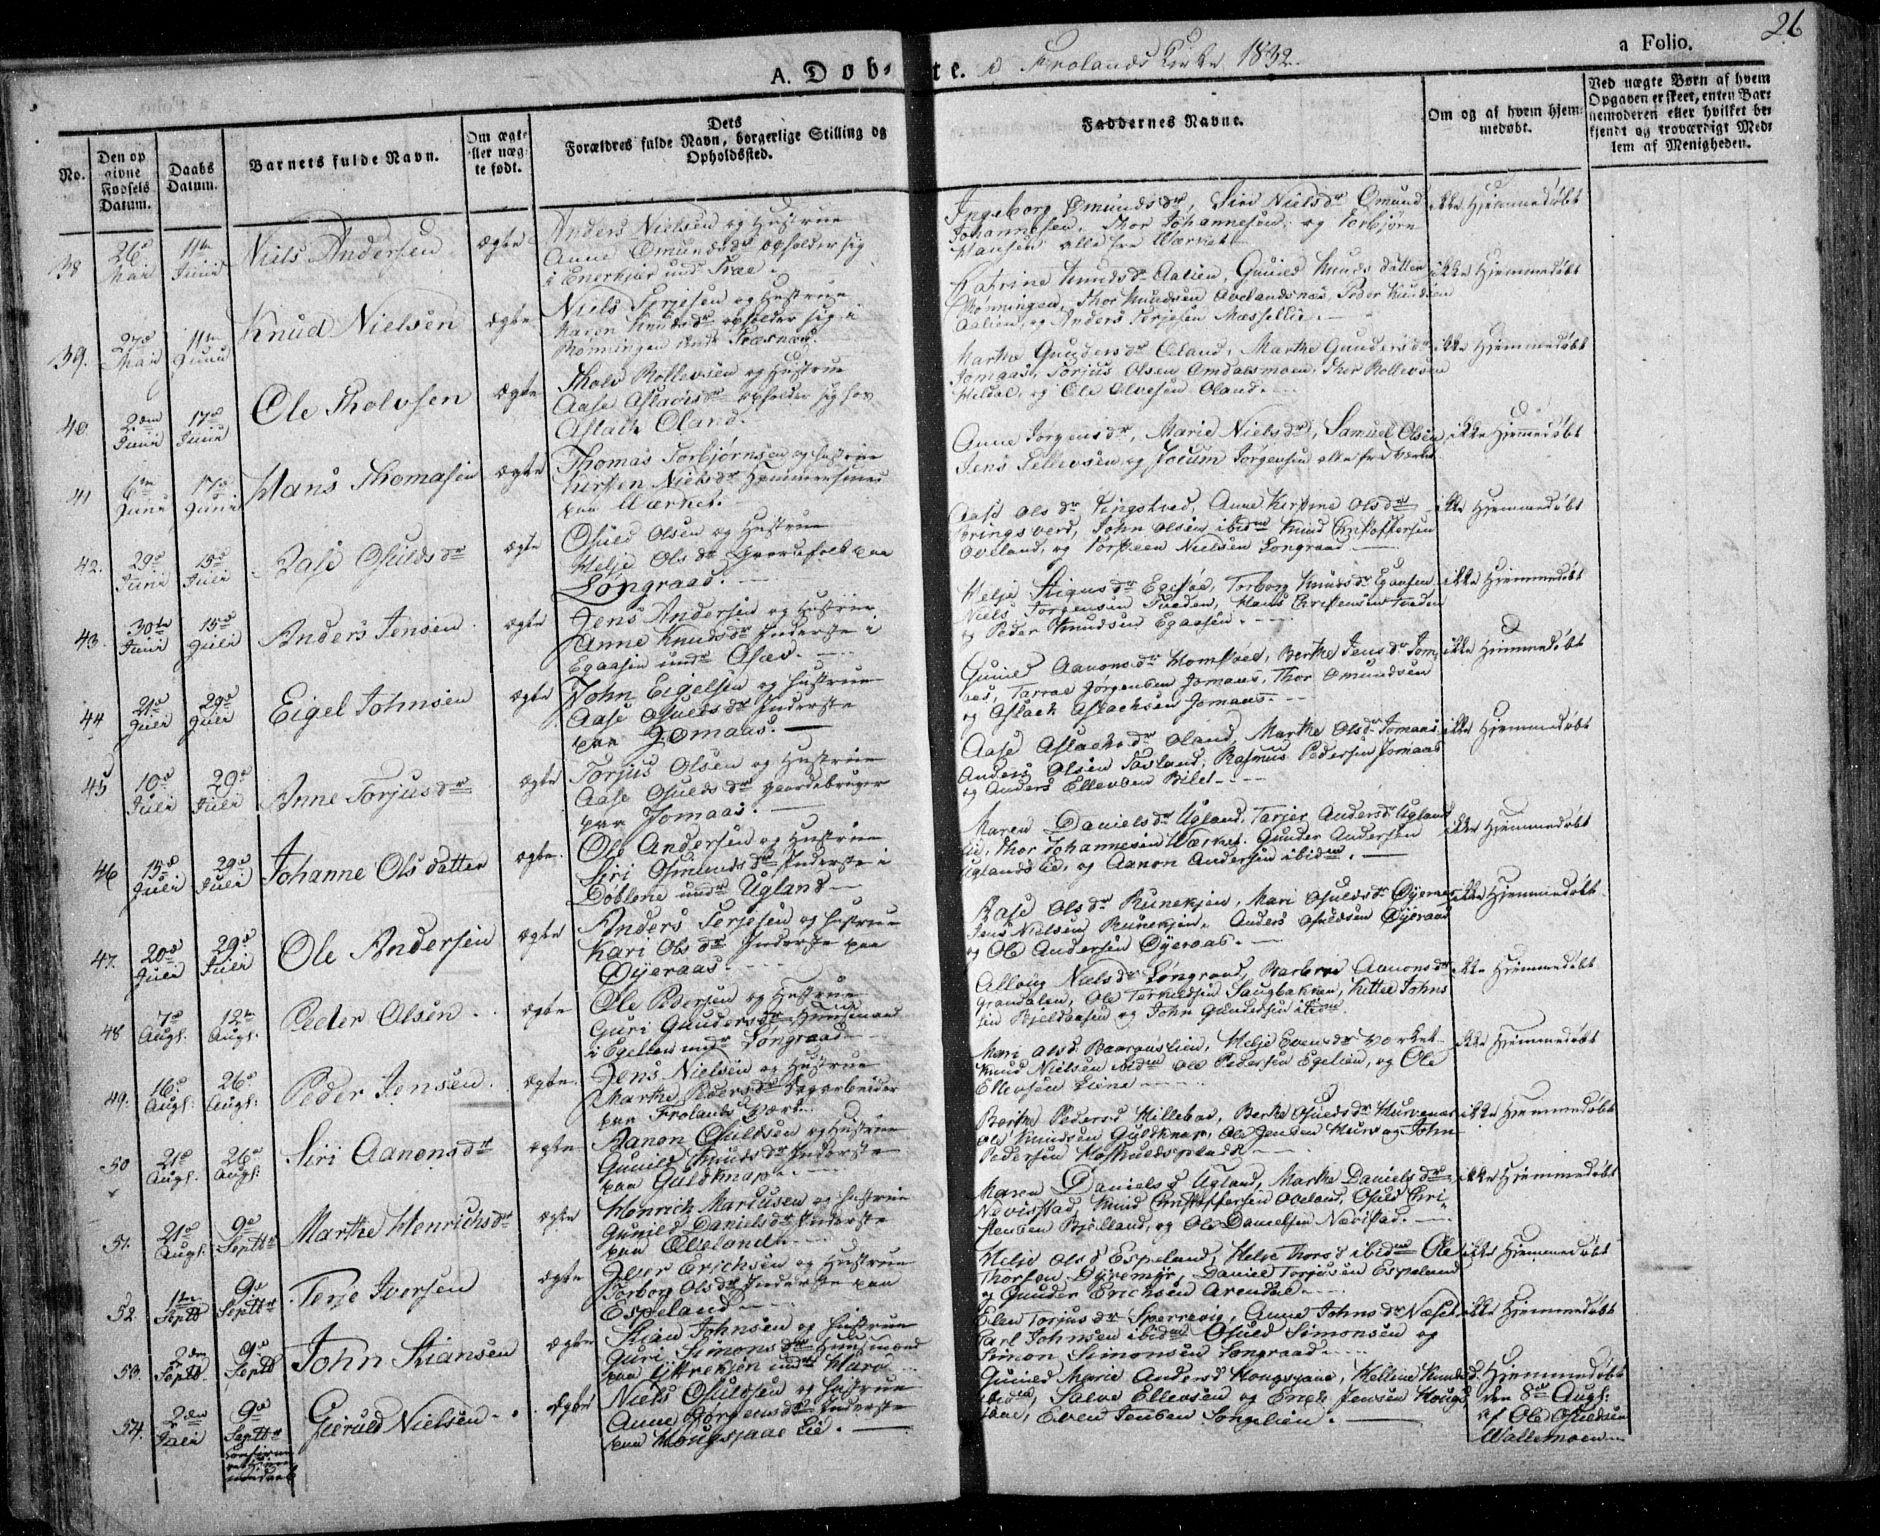 26
A. Døbte. i Frolands Kirke 1832.
a Folio.
No.
Den op
givne
Fødsels
Datum.
Daabs
Datum.
Barnets fulde Navn.
Om ægte
eller uæg
te født.
Dets
Forældres fulde Navn, borgerlige Stilling og
Opholdssted.
Faddernes Navne.
Om og af hvem hjem-
medøbt.
Ved uægte Børn af hvem
Opgaven er skeet, enten Bar-
nemoderen eller hvilket be-
kjendt og troværdigt Med-
lem af Menigheden.
38
26de Mai
11te Juni
Niels Andersen
ægte
Anders Nielsen og Hustrue
Anne Omundsdr opholder sig
i Enerkiær und Træe.
Ingeborg Omundsdr, Siri Nielsdr Omund
Johannesen, Thor Johannesen og Torbjørn
Hansen alle fra Wærket
ikke Hjemmedøbt
39.
27de Mai
11te Juni
Knud Nielsen
ægte
Niels Terjesen og Hustrue
Karen Knudsdr opholder sig i
Rønningen und Træsnæs.
Katrine Knudsdr Aalien, Gunild Knudsdatter
Rønningen, Thor Knudsen Avelandsnæs, Peder Knudsen
Aalien, og Anders Terjesen Mæsellie.
ikke Hjemmedøbt
40
2den Juni
17de Juni
Ole Tholvsen
ægte
Tholv Rollevsen og Hustrue
Aase Aslacsdr opholder sig hos
Aslach Oland.
Marthe Gundersdr Oland, Marthe Gundersdr
Jomaas, Torjus Olsen Omdalsmoen, Thor Rollevsen
Heldal, og Ole Alvesen Oland.
ikke Hjemmedøbt
41
6te Juni
17de Juni
Hans Thomasen
ægte
Thomas Torbjørnsen og Hustrue
Kirsten Nielsdr Hammersmed
paa Wærket.
Anne Jørgensdr, Marie Nielsdr, Samuel Olsen
Jens Tellevsen og Jocum Jørgensen alle fra Værket
ikke Hjemmedøbt
42.
29de Juni
15de Juli
Aase Osuldsdr
ægte
Osuld Olsen og Hustrue
Helje Olsdr Gaardfolk paa
Longraad.
Aase Olsdr Ringstved, Anne Kirstine Olsdr
Ringsverd, John Olsen ibidm Knud Christophersen
Oveland, og Torsteen Nielsen Longraad
ikke Hjemmedøbt
43.
30te Juni
15de Juli
Anders Jensen
ægte
Jens Andersen og Hustrue
Anne Knudsdr Inderste i
Egaasen undr Osæv.
Helje Stiansdr Egeskoe, Torborg Knudsdr Egaasen
Niels Jørgensen Tveden, Hans Christensen Tveden
og Peder Knudsen Egaasen.
ikke Hjemmedøbt
44
21de Juli
29de Juli
Eigel Johnsen
ægte
John Eigelsen og Hustrue
Aase Osuldsdr Inderste
paa Jomaas.
Gunild Aanonsdr Homsved, Berthe Jensdr Jom-
aas, Tarral Jørgensen Jomaas, Thor Omundsen
og Aslach Aslachsen Jomaas
ikke Hjemmedøbt
45
10de Juli
29de Juli
Anne Torjusdr
ægte
Torjus Olsen og Hustrue
Aase Osuldsdr Gaardebruger
paa Jomaas.
Aase Aslachsdr Oland, Marthe Olsdr Jomaas
Anders Olsen Tavland, Rasmus Pedersen Jomaas
og Anders Ellevsen Bilet
ikke Hjemmedøbt
46
15de Juli
29de Juli
Johanne Olsdatter
ægte.
Ole Andersen og Hustrue
Siri Osmundsdr Inderste i
Døblene undr Ugland
Maren Danielsdr Ugland, Tarjer Andersdr Ugland
lid, Thor Johannesen Wærket, Gunder Andersen
Uglandslid, og Aanon Andersen ibidm.
ikke Hjemmedøbt
47.
20de Juli
29de Juli
Ole Andersen
ægte
Anders Terjesen og Hustrue
Kari Olsdr Inderste paa
Øyeraas.
Aase Olsdr Runekjen, Mari Osuldsdr Øyeraas
Jens Nielsen Runekjen, Anders Osuldsen Øyeraas
og Ole Andersen Øyeraas.
ikke Hjemmedøbt
48
7de Augs.
12te Augs.
Peder Olsen.
ægte
Ole Pedersen og Hustrue
Guri Gundersdr Huusmand
i Egelien undr Longraad
Allvig Nielsdr Longraad, Barbroe Aanonsdr
Grandalen, Ole Terkildsen Saugbakken, Kittel Johns
sen Bjeldaasen og John Gundersen ibidm.
ikke Hjemmedøbt
49.
16de Augs.
26de Augs.
Peder Jensen.
ægte.
Jens Nielsen og Hustrue
Marthe Pedersdr Dagarbeider
paa Frolands Værk
Mari Olsd. Baaraaslien, Helje Evensdr Værket
Knud Nielsen ibidm Ole Pedersen Egelien, og Ole
Ellevsen Liene
ikke Hjemmedøbt
50
21de Augs.
26de Augs.
Siri Aanonsdr
ægte
Aanon Osuldsen og Hustrue
Gunild Knudsdr Inderste
paa Guldknap.
Berthe Pedersd Hillebæ, Berthe Osuldsdr Hurvenæs
Ole Knudsen Guldknap, Ole Jensen Hurv og John
Pedersen Høskuldsplads
ikke Hjemmedøbt
51.
21de Augs.
9de Septbr
Marthe Henrichsdr
ægte
Henrich Marcusen og Hustrue
Gunild Danielsdr Inderste
paa Oveland
Maren Danielsd Ugland, Marthe Danielsdr
Nevisstad, Knud Christophersen Oveland, Osuld Chri-
stensen Bjelland, og Ole Danielsen Nævistad.
ikke Hjemmedøbt
52.
1te Septb
9de Septbr
Terje Iversen
ægte
Iver Erichsen og Hustrue
Torborg Olsdr Inderste paa
Espeland
Helje Olsd Espeland, Helje Thorsd ibidm Ole
Thorsen Dyremyr, Daniel Torjusen Espeland
og Gunder Erichsen Arendal.
ikke Hjemmedøbt
53.
2den Septb
9de Septb
John Stiansen
ægte
Stian Johnsen og Hustrue
Guri Simonsdr Huusmand
paa Uttrekjen undr Hurv
Elen Torjusdr Sparrevig, Anne Johnsdr Næset
Carl Johnsen ibidm Osuld Simonsen og
Simon Simonsen Longraad
ikke Hjemmedøbt
54.
2den Juli
9de Septbr
Gjeruld Nielsen
ægte
Niels Osuldsen og Hustrue
Anne Jørgensdr Inderste
paa Hougsjaae Lid.
Gunild Marie Andersd Hougsjaae, Kelline Knudsd.
ibidm, Salve Ellevsen og Erich Jensen Hougs
jaae, Even Jensen Songelien.
Hjemmedøbt
den 8de Augs.
af Ole Osuldsen
Wallemoen